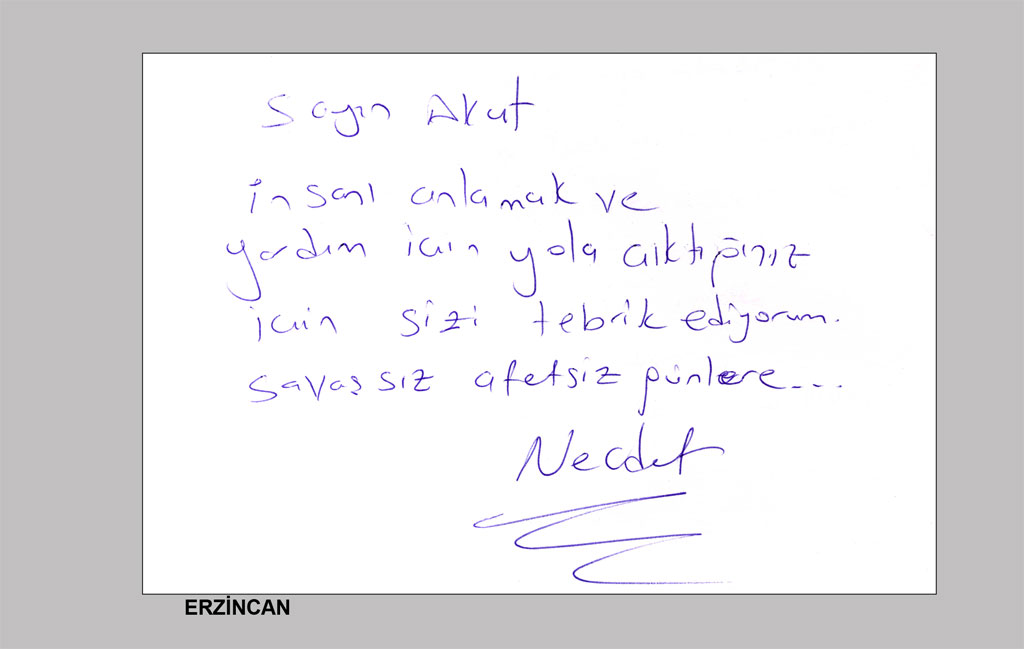 Sayın Akut
insanı anlamak ve
yardım için yola çıktığınız
için sizi tebrik ediyorum.
savaşsız afetsiz günlere...
Necdet
ERZİNCAN